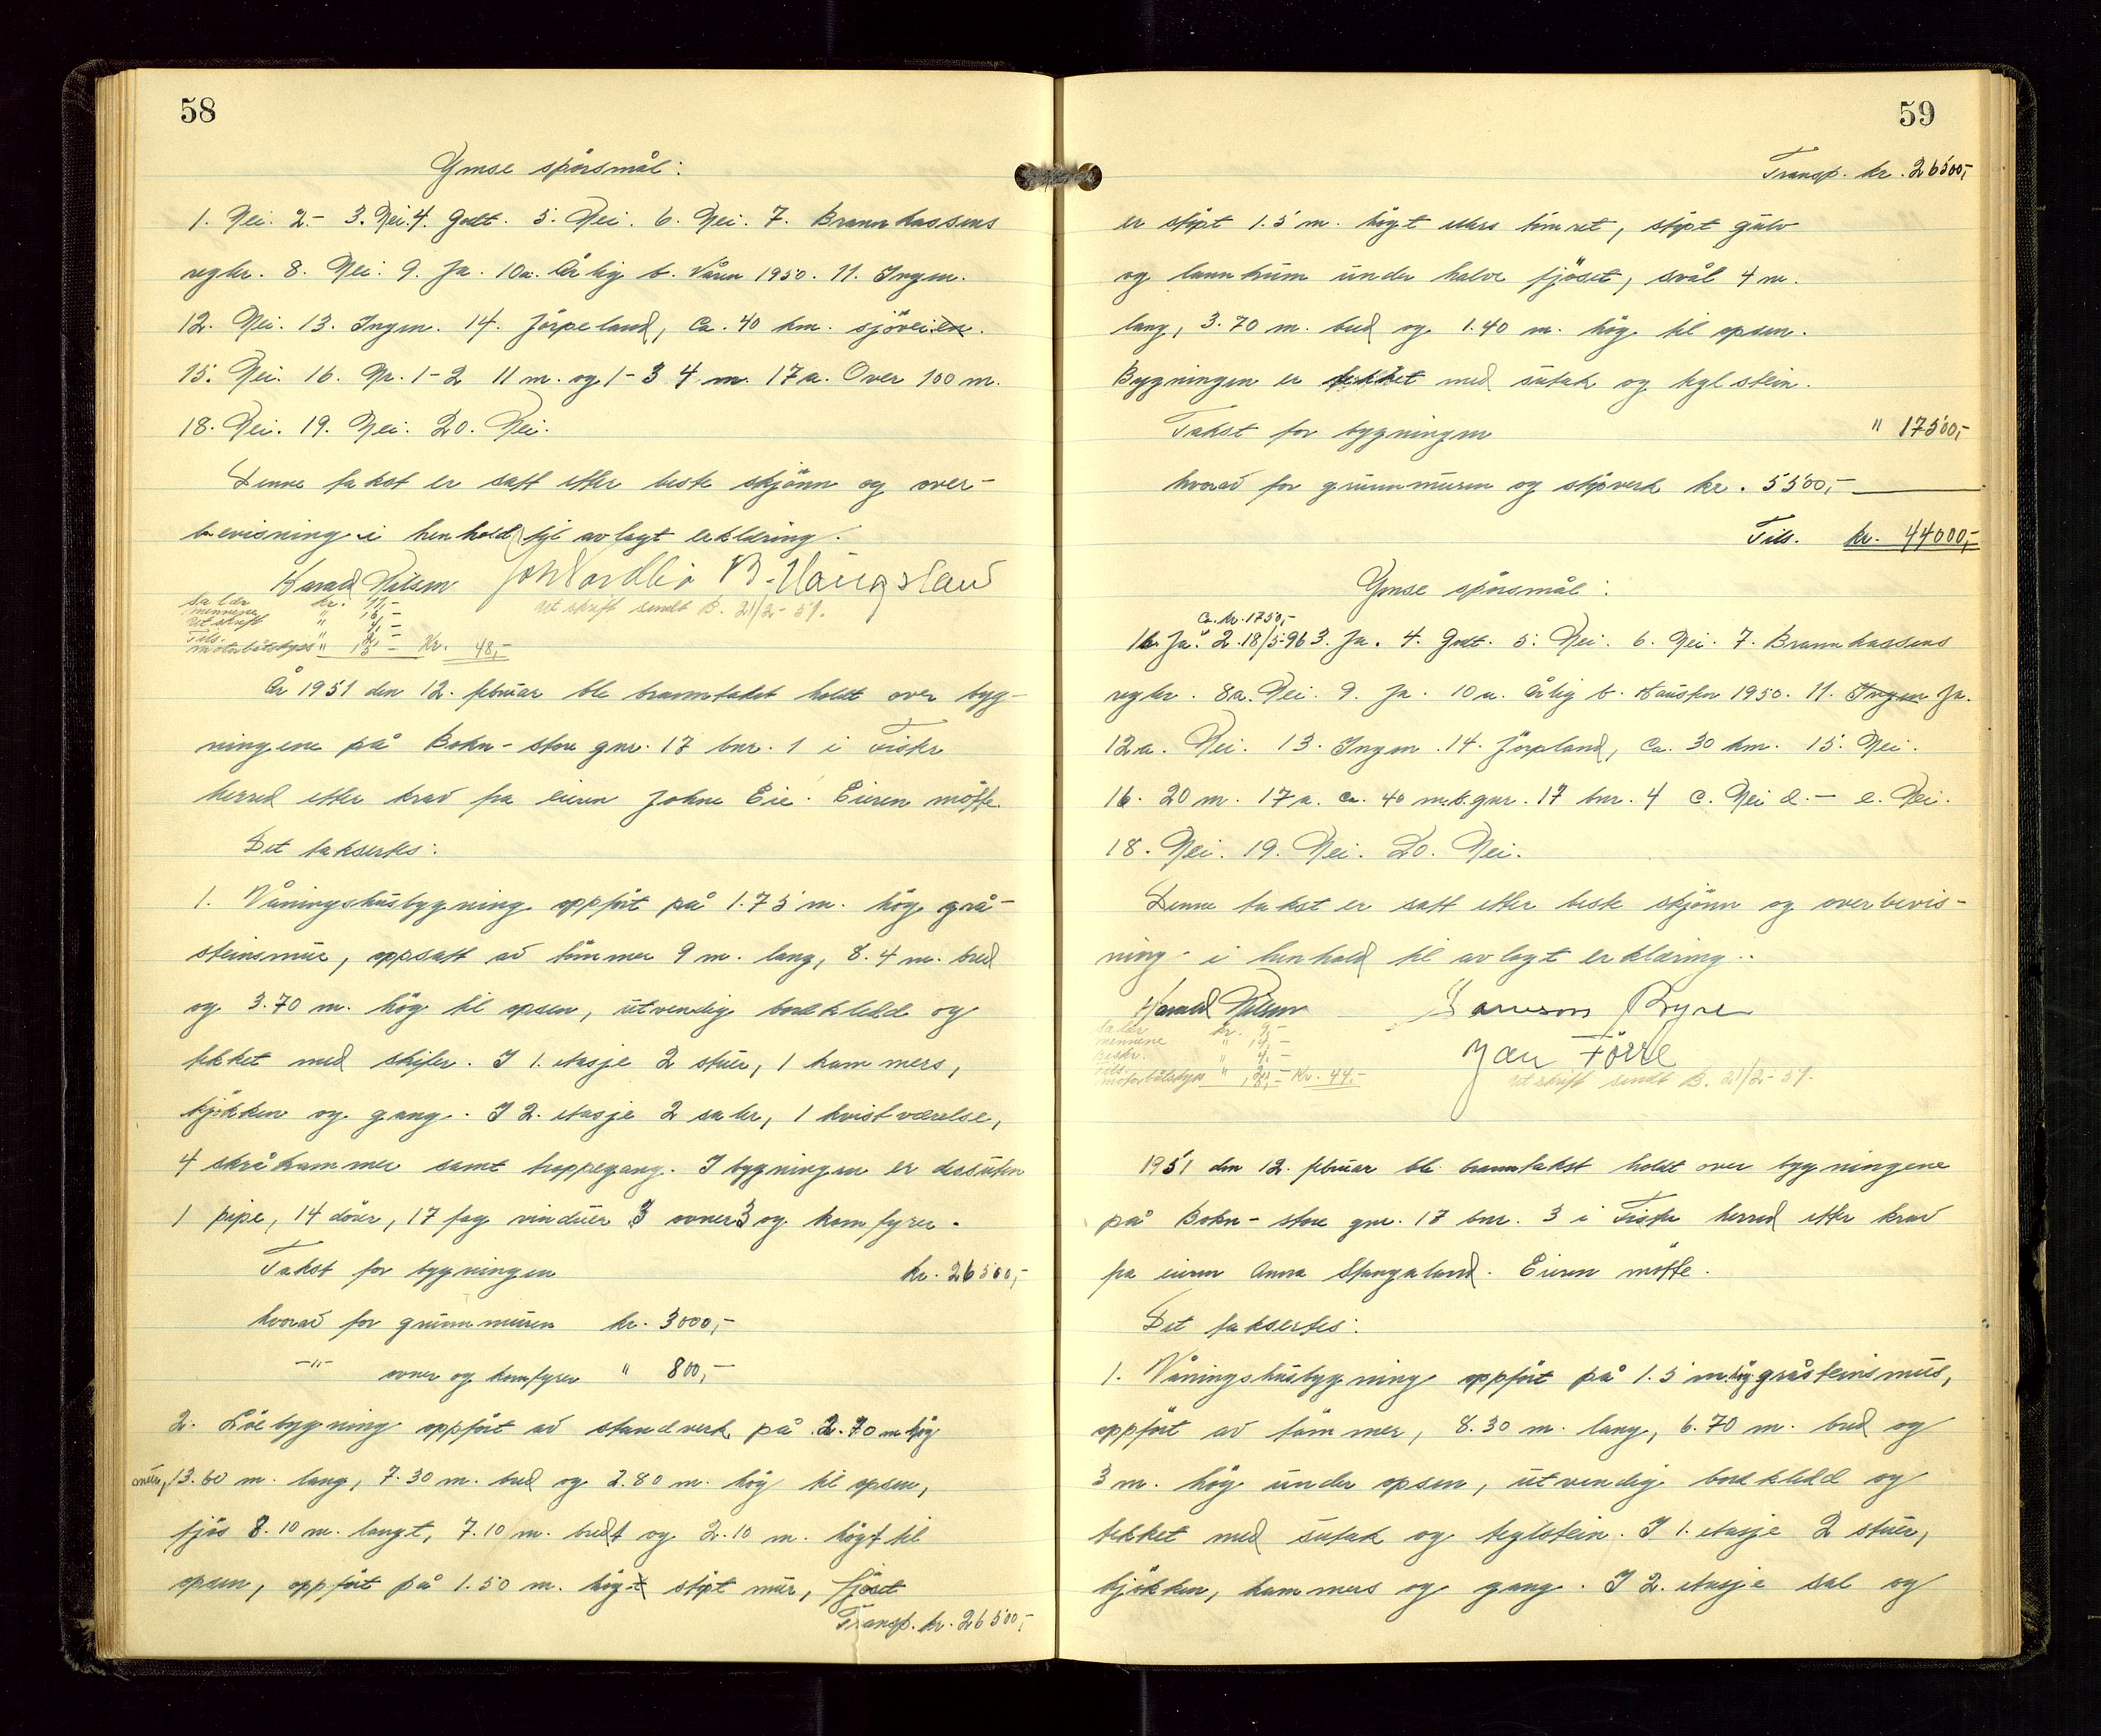 58
Ymse spörsmål:
1. Nei. 2.- 3. Nei. 4. Godt. 5. Nei. 6. Nei. 7. Brannkassens
regler. 8. Nei. 9. Ja. 10a. Årlig b. Våren 1950. 11. Ingen.
12. Nei. 13. Ingen. 14. Jörpeland, ca. 40 km. sjöveien.
15. Nei. 16. Nr. 1-2 11 m. og 1-3 4 m. 17a. Over 100 m.
18. Nei. 19. Nei. 20. Nei.
Denne takst er satt etter beste skjönn og over-
bevisning i henhold til avlagt erklæring.
Harald Nilsen
Salær kr. 11,-
mennene " 16,-
Utskrift " 4,-
Tils.
motorbåtskyss " Kr. 48,-
Utskrift sendt B. 21/2-51.
År 1951 den 12. februar ble branntakst holdt over byg-
ningene på Bokn-store gnr. 17 bnr. 1 i Fister
herred etter krav fra eieren Johne Eie. Eieren mötte.
Det taksertes:
1. Våningshusbygning oppfört på 1.75 m. hög grå-
steinsmur, oppsatt av tömmer 9 m. lang, 8.4 m. bred
og 3.70 m. hög til opsen, utvendig bordkledd og
tekket med skifer. I 1. etasje 2 stuer, 1 kammers,
kjökken og gang. I 2. etasje 2 saler, 1 kvistværelse,
4 skråkammer samt trappegang. I bygningen er dessuten
1 pipe, 14 dörer, 17 fag vinduer 3 ovner 3 og komfyrer.
Takst for bygningen kr. 26500,-
hvorav for grunnmuren kr. 3000,-
-"- ovner og komfyrer " 800,-
2. Löebygning oppfört av standverk på 2.70 m hög
mur, 13.60 m. lang, 7.30 m. bred og 2.80 m. hög til opsen,
fjös 8.10 m. langt, 7.10 m. bredt og 2.10 m. högt til
opsen, oppfört på 1.50 m. högt stöpt mur, fjöset
Transp. kr. 26500,-
59
Transp. kr. 26500,-
er stöpt 1.5 m. högt ellers tömret, stöpt gulv
og lannkum under halve fjöset, svål 4 m.
lang, 3.70 m. bred og 1.40 m. hög til opsen.
Bygningen er tekket med sutak og teglstein.
Takst for bygningen " 17500,-
hvorav for grunnmuren og stöpverk kr. 5500,-
Tils. kr. 44000,-
Ymse spörsmål:
Ca. kr. 1750,-
1a. Ja. 2. 18/5-96 3. Ja. 4. Godt. 5. Nei. 6. Nei. 7. Brannkassens
regler. 8a. Nei. 9. Ja. 10a. Årlig b. Hausten 1950. 11. Ingen Ja.
12a. Nei. 13. Ingen. 14. Jörpland, ca. 30 km. 15. Nei.
16. 20 m. 17a. ca. 40 m. b. gnr. 17 bnr. 4 c. Nei d. - e. Nei.
18. Nei. 19. Nei. 20. Nei.
Denne takst er satt etter beste skjönn og overbevis-
ning i henhold til avlagt erklæring.
Harald Nilsen
Jan Förre
Salær kr. 9,-
mennene " 14,-
Beskr. " 4,-
Tils.
motorbåtskyss " Kr. 44,-
Utskrift sendt B. 21/2-51.
1951 den 12. februar ble branntakst holdt over bygningene
på Bokn-store gnr. 17 bnr. 3 i Fister herred etter krav
fra eieren Anna Stangaland. Eieren mötte.
Det taksertes:
1. Våningshusbygning oppfört på 1.5 m. hög gråsteinsmur,
oppfört av tömmer, 8.30 m. lang, 6.70 m. bred og
3 m. hög under opsen, utvendig bordkledd og
tekket med sutak og teglstein. I 1. etasje 2 stuer,
kjökken, kammers og gang. I 2. etasje sal og